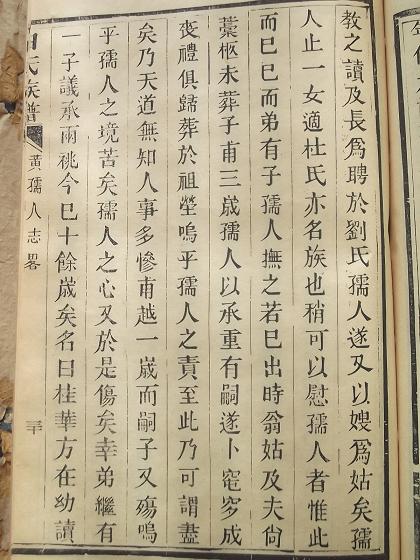 教之讀及長爲聘於劉氏孺人遂又以嫂爲姑矣孺
人止一女適杜氏亦名族也稍可以慰孺人者惟此
而巳巳而弟有子孺人撫之若巳出時翁姑及夫尙
藁柩未葬子甫三歲孺人以承重有嗣遂卜窀穸成
喪禮俱歸葬於祖塋嗚乎孺人之責至此乃可謂盡
矣乃天道無知人事多慘甫越一歲而嗣子又殤嗚
乎孺人之境苦矣孺人之心又於是傷矣幸弟繼有
一子議承兩祧今巳十餘歲矣名曰桂華方在幼讀
氏族譜
黃孺人志畧